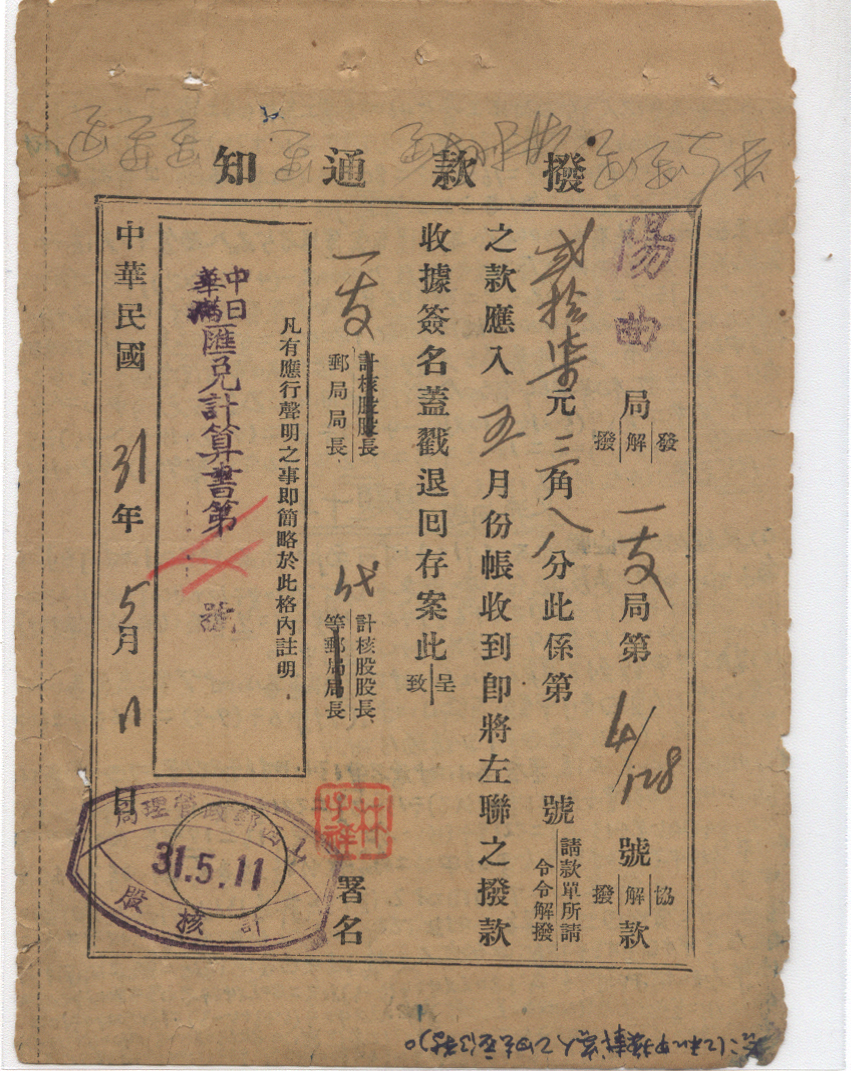 撥款通知
陽曲局發解撥一支局第4/128號協解撥款
貳拾柒元三角八分此係第號請款單所請令令解撥
之款應入五月份帳收到卽將左聯之撥款
收據簽名蓋戳退囘存案此呈致
一支計核股股長郵局局長代計核股股長等郵局局長署名
林子祥
凡有應行聲明之事卽簡略於此格內註明
中日華滿匯兌計算書第號
中華民國31年5月11日
山西郵政管理局
31.5.11
計核股